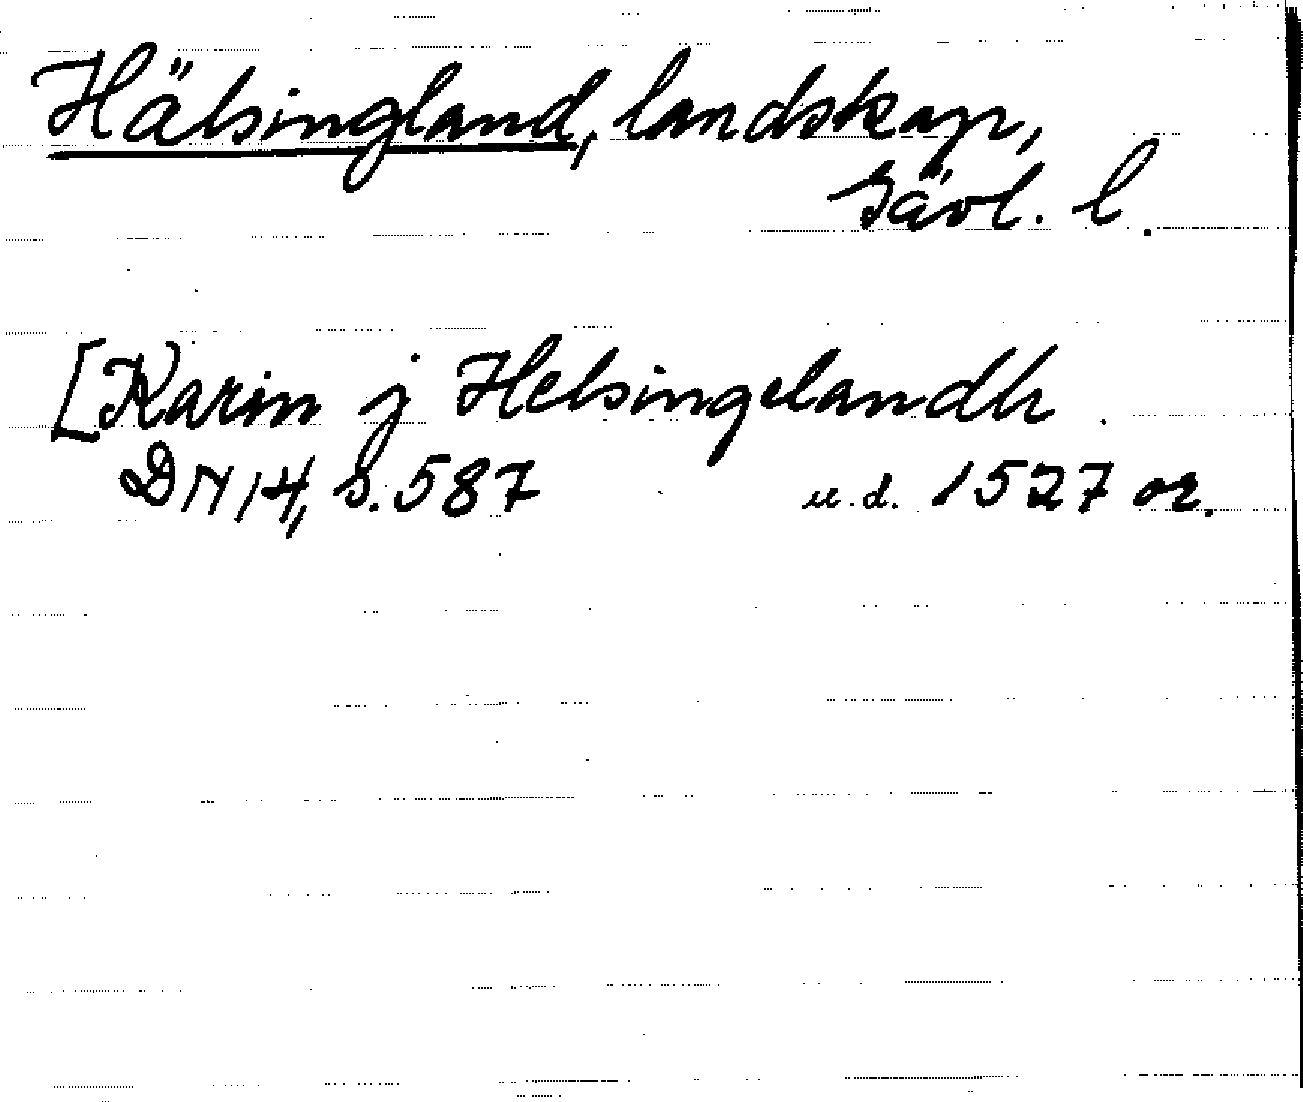 Hälsingland, landskap,
Gävl. l.
[Karin j Helsingelandh
DN 14, s. 587 u.d. 1527 or.